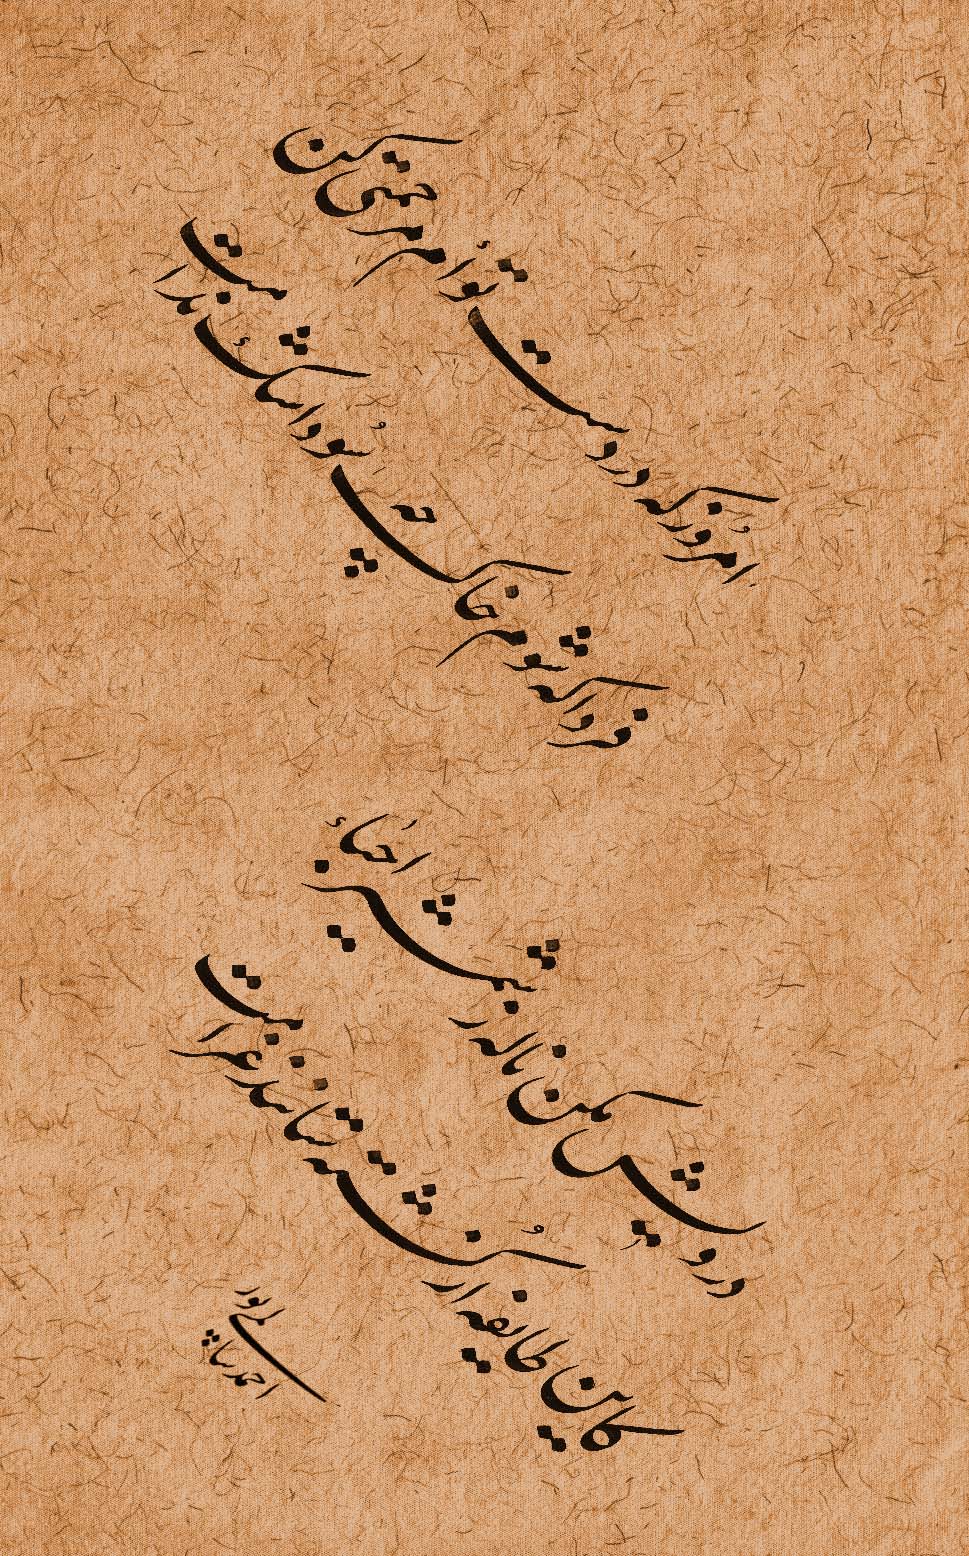 امروز که در دست توام مرحمتی کن
فردا که شوم خاک چه سود اشک ندامت
درویش مکن ناله ز شمشیر احبا
کاین طایفه از کشته ستانند غرامت
احمد